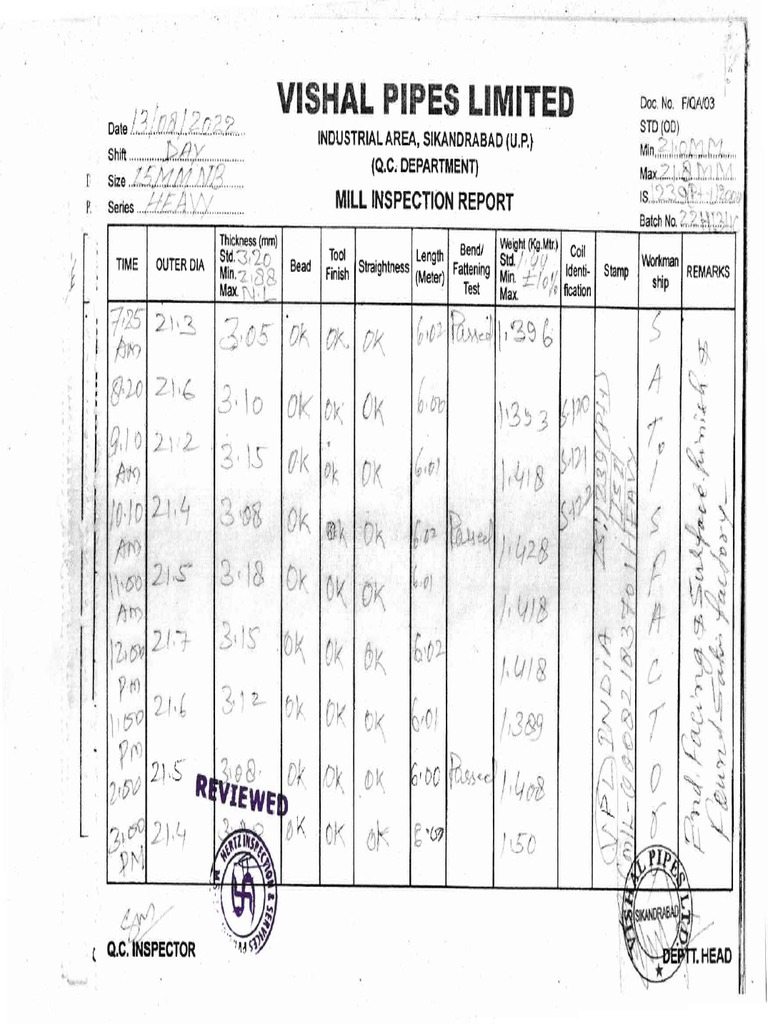 VISHAL PIPES LIMITED
INDUSTRIAL AREA, SIKANDRABAD (U.P.)
(Q.C. DEPARTMENT)
MILL INSPECTION REPORT
Date 13/08/2022
Shift DAY
Size 15MMNB
Series HEAVY
Doc. No. F/QA/03
STD (OD)
Min. 21.0MM
Max. 21.8MM
IS 1239
Batch No.
TIME OUTER DIA Thickness (mm) Std. 3.20 Min. 2.88 Max. NiL Bead Tool Finish Straightness Length (Meter) Bend/ Fattening Test Weight (Kg.Mtr.) Std. 1.44 Min. ±10% Max. Coil Identi- fication Stamp Workman ship REMARKS
7:25 AM 21.3 3.05 OK OK OK 6.02 Passed 1.396
8.20 21.6 3.10 OK OK OK 6.00 1.353 S-120
9.10 AM 21.2 3.15 OK OK OK 6.01 1.418 S-121
10.10 AM 21.4 3.08 OK OK OK 6.02 Passed 1.428 S-122
11.00 AM 21.5 3.18 OK OK OK 6.01 1.418
12.00 PM 21.7 3.15 OK OK OK 6.02 1.418
1.50 PM 21.6 3.12 OK OK OK 6.01 1.389
2.50 21.5 3.08 OK OK OK 6.00 Passed 1.408
3.00 PM 21.4 OK OK OK 6.00 1.50
VPL INDIA IS:1239 (Pt-1)
HEAVY
SATISFACTORY
End Facing & Surface finish &
found Satisfactory
REVIEWED
HERTZ INSPECTION & SERVICES PV
VISHAL PIPES LTD.
SIKANDRABAD
Q.C. INSPECTOR
DEPTT. HEAD